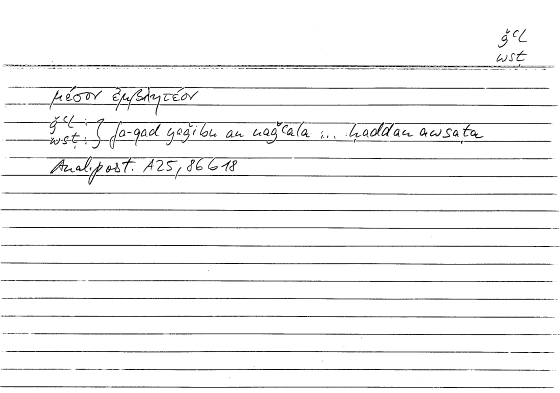 ǧʿl
wsṭ
μέσον ἐμβλητέον
ǧʿl :
wsṭ : } fa-qad yaǧibu an naǧʿala ... ḥaddan awsaṭa
Anal. post. A25, 86b18